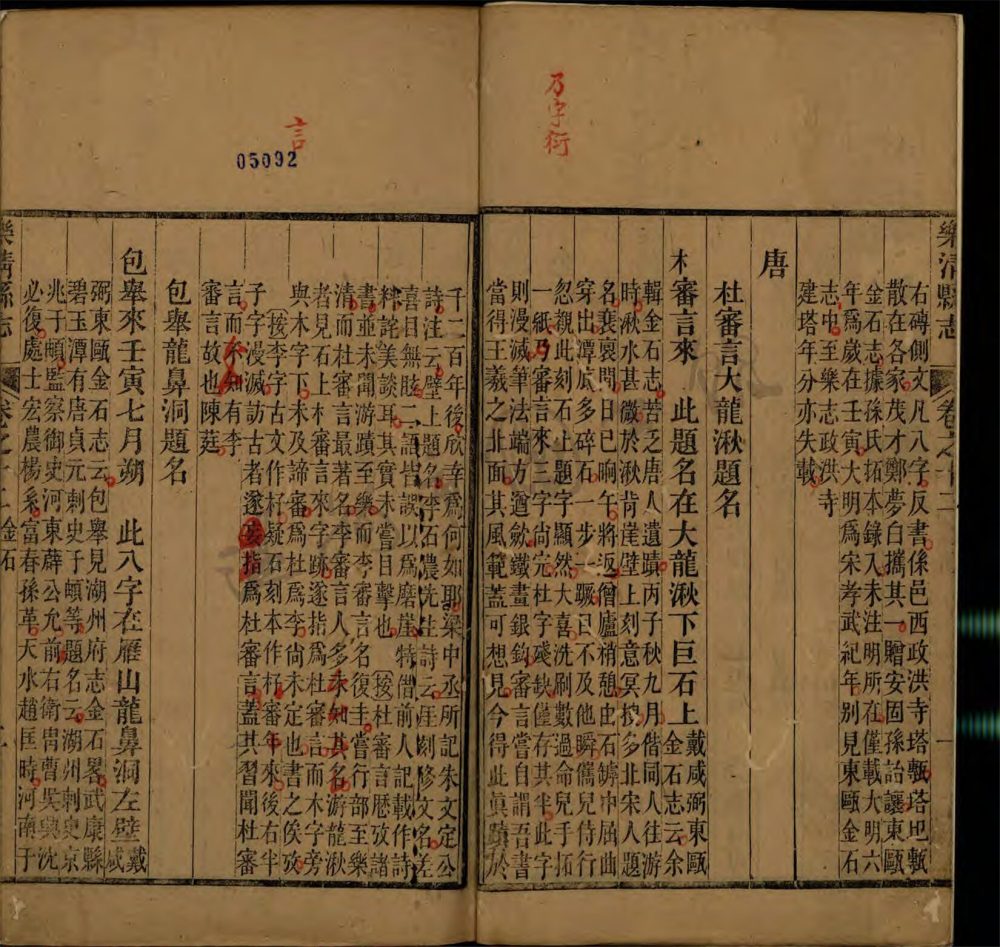 乃字衍
樂清縣志
卷之十二
一
右磚側文凡八字反書係邑西政洪寺塔甎塔圯甎
散在各家茂才鄭夢白攜其一贈安固孫詒讓東甌
金石志據孫氏拓本錄入未注明所在僅載大明六
年爲歲在壬寅大明爲宋孝武紀年别見東甌金石
志中至樂志政洪寺
建塔年分亦失載
唐
杜審言大龍湫題名
木審言來 此題名在大龍湫下巨石上 戴咸弼東甌
金石志云余
輯金石志苦乏唐人遺蹟丙子秋九月偕同人往游
時湫水甚微於湫背崖壁上刻意冥搜多北宋人題
名裵褱問日已晌午將返僧廬稍憩出石罅中屈曲
穿出潭底多碎石一步一蹶日不及他瞬儁兒侍行
忽覩此刻石上題字顯然大喜洗刷數過命兒手拓
一紙乃審言來三字尚完杜字殘缺僅存其半此字
則漫滅筆法端方遒斂鐵畫銀鉤審言嘗自謂吾書
當得王羲之北面其風範蓋可想見今得此眞蹟於
言
05092
千二百年後欣幸爲何如耶梁中丞所記朱文定公
詩注云壁上題名李石農先生詩云厓劖修文名差
喜目無眩二語皆誤以爲磨崖特借前人記載作詩
料詫美談耳其實未嘗目擊也按杜審言歴攷諸
書並未聞游蹟至樂而李審言名復圭嘗行部至樂
清而杜審言最著名李審言人多未知其名游龍湫
者見石上木審言來字跡遂指爲杜審言而木字旁
與木字下未及諦審爲杜爲李尚未定也書之俟攷
按李字古文作杍疑石刻本作杍審年來後右半
子字漫滅訪古者遂妄指爲杜審言蓋其習聞杜審
言而不知有李
審言故也陳莚
包舉龍鼻洞題名
包舉來壬寅七月朔 此八字在雁山龍鼻洞左壁 戴
咸
弼東甌金石志云包舉見湖州府志金石畧武康縣
碧玉潭有唐貞元刺史于頔等題名云湖州刺史京
兆于頔監察御史河東薛公允前右衛冑曹吳興沈
必復處士宏農楊系富春孫革天水趙匡時河南于
樂清縣志
卷之十二 金石